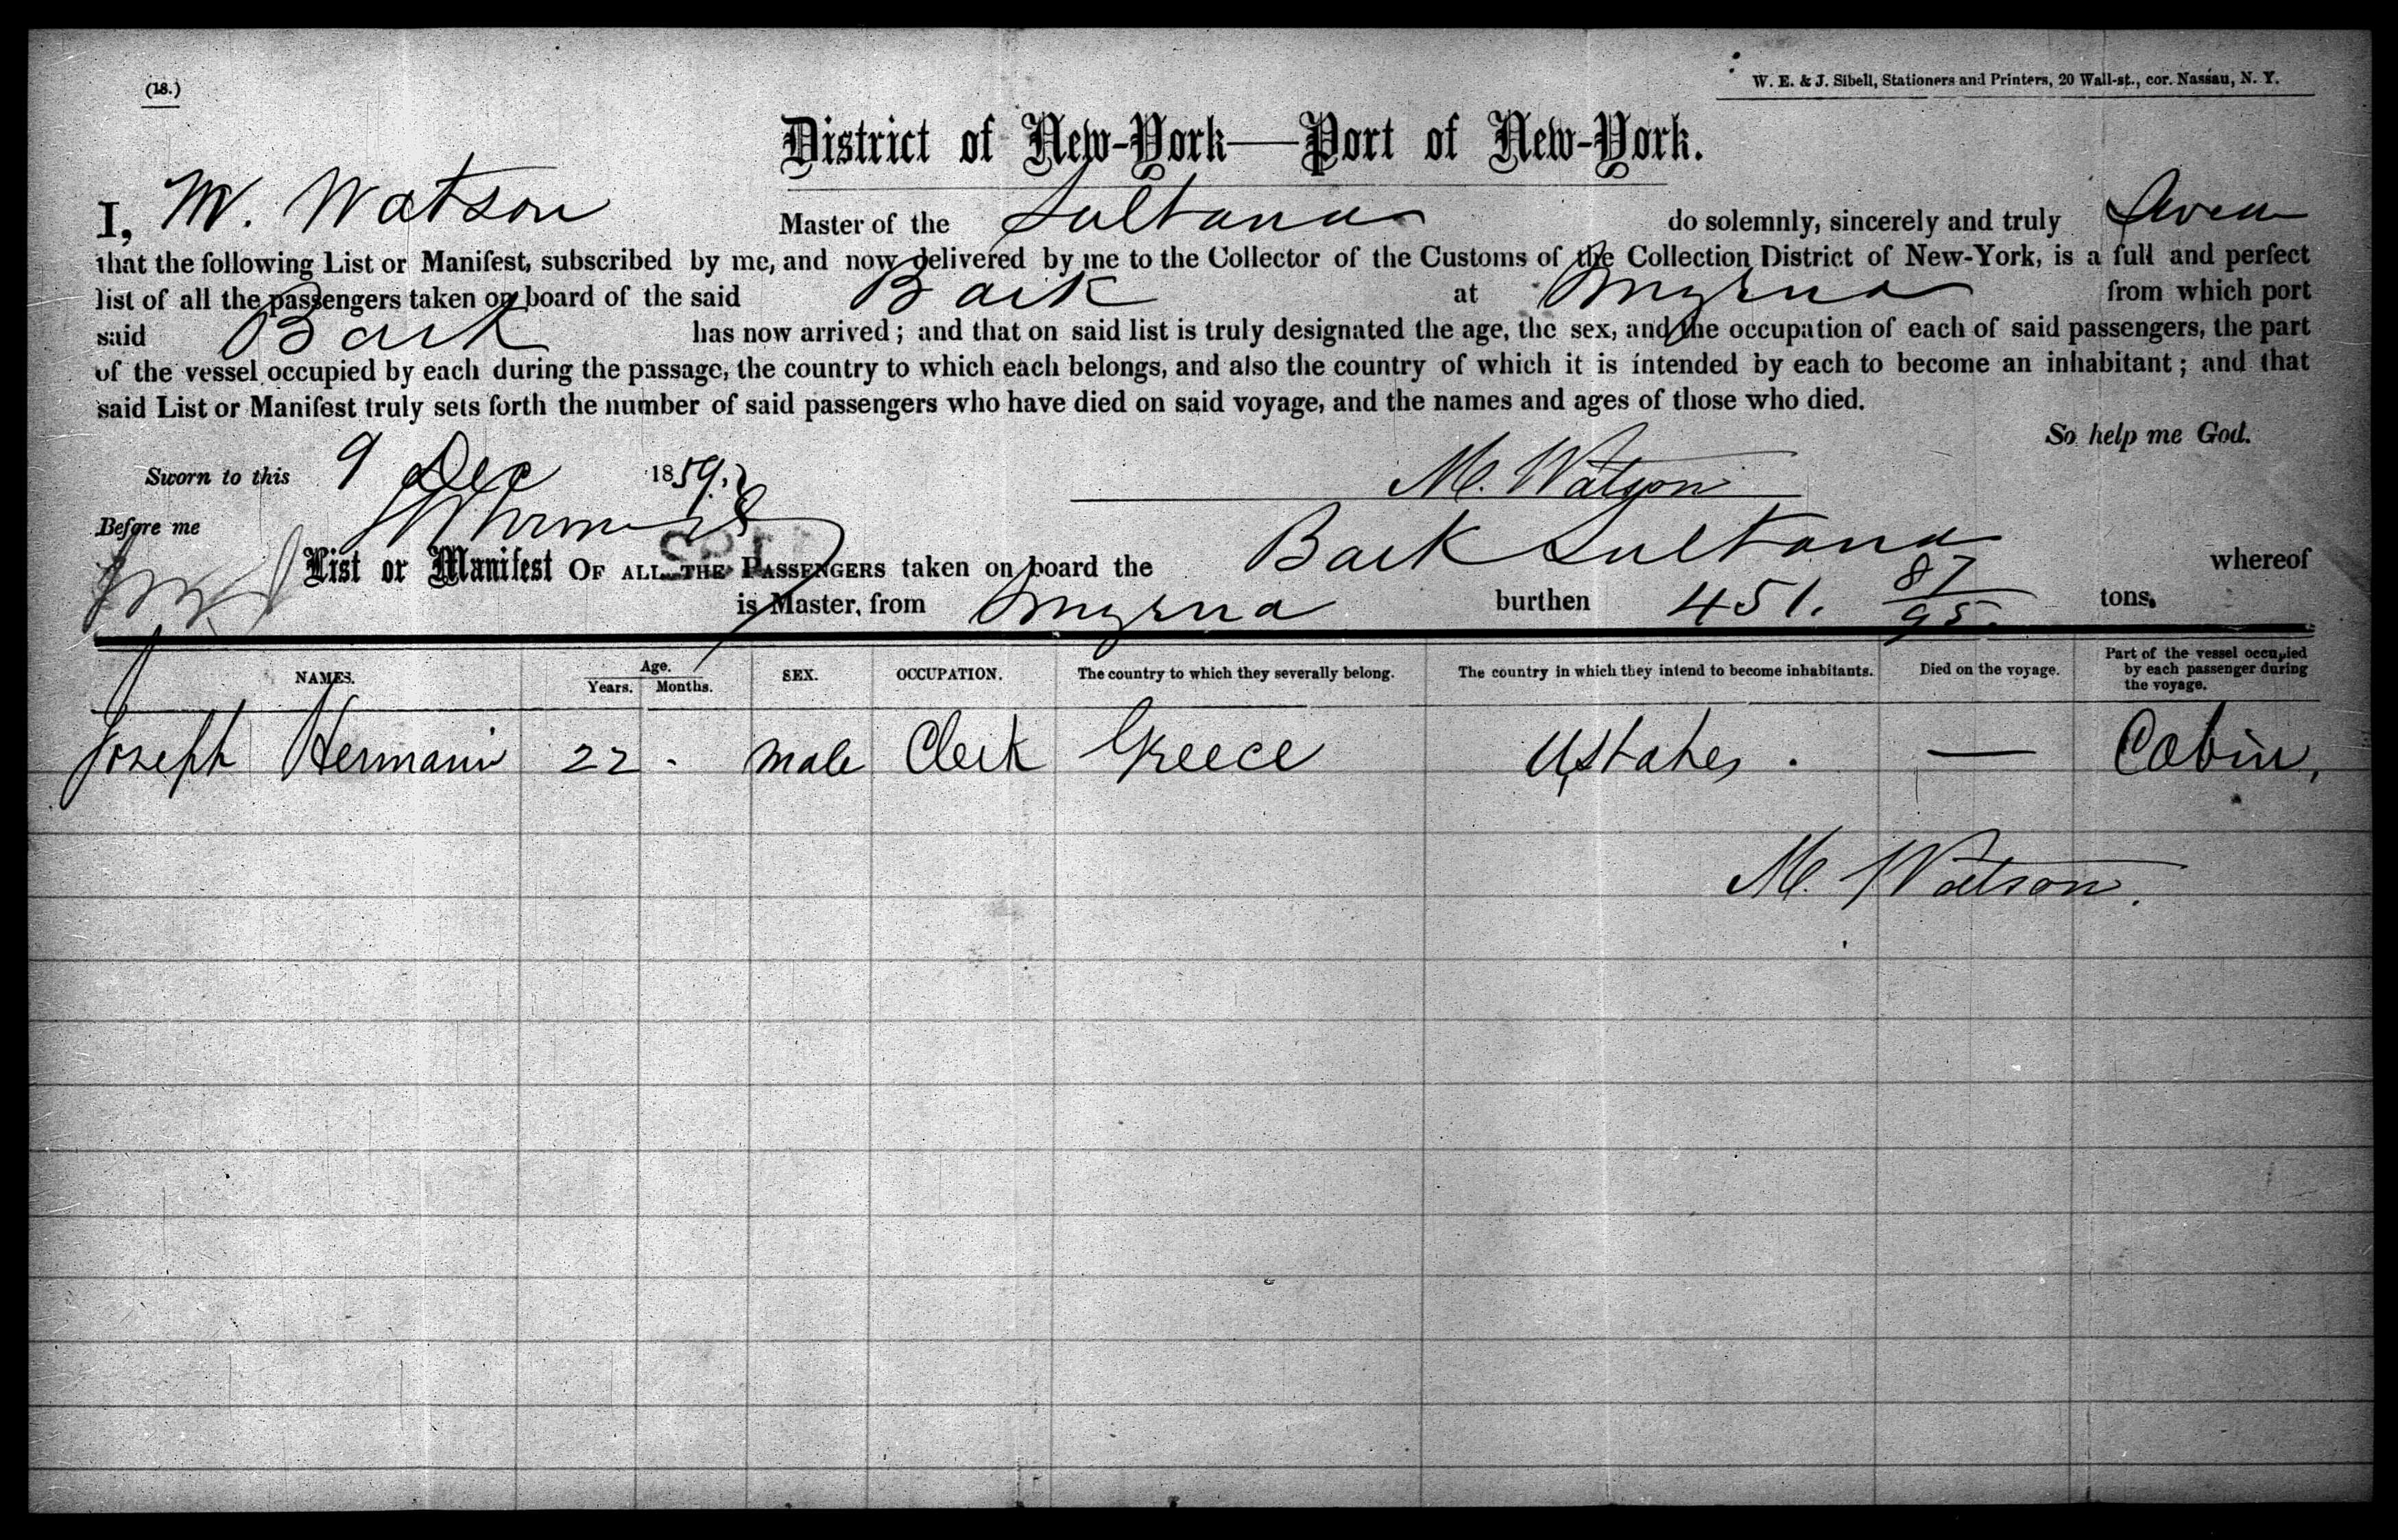 (18.)
W. E. & J. Sibell, Stationers and Printers, 20 Wall-st., cor. Nassau, N. Y.
District of New-York—Port of New-York.
I, M. Watson Master of the Sultana do solemnly, sincerely and truly
that the following List or Manifest, subscribed by me, and now delivered by me to the Collector of the Customs of the Collection District of New-York, is a full and perfect
list of all the passengers taken on board of the said Bark at Smyrna from which port
said Bark has now arrived; and that on said list is truly designated the age, the sex, and the occupation of each of said passengers, the part
of the vessel occupied by each during the passage, the country to which each belongs, and also the country of which it is intended by each to become an inhabitant; and that
said List or Manifest truly sets forth the number of said passengers who have died on said voyage, and the names and ages of those who died.
So help me God.
Sworn to this 9 Dec 1859. M. Watson
Before me
List or Manifest OF ALL THE PASSENGERS taken on board the Bark Sultana whereof
is Master, from Smyrna burthen 451. 87/95 tons.
NAMES. Age. Years. Months. SEX. OCCUPATION. The country to which they severally belong. The country in which they intend to become inhabitants. Died on the voyage. Part of the vessel occupied by each passenger during the voyage.
Joseph Hermann 22 - male Clerk Greece UStates . — Cabin,
M. Watson.